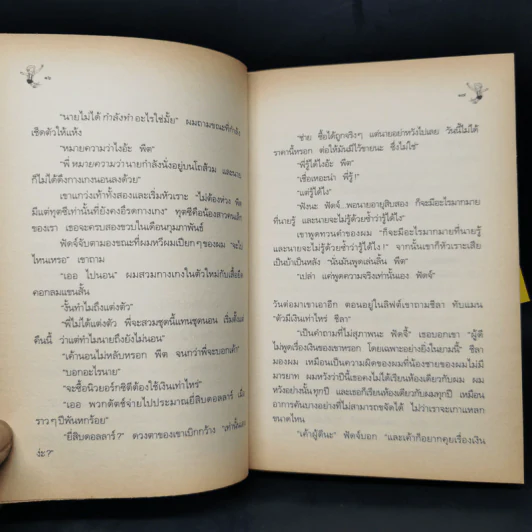 "นายไม่ได้ กำลังทำ อะไรใช่มั้ย" ผมถามขณะที่กำลัง
เช็ดตัวให้แห้ง
"หมายความว่าไงอ้ะ พีต"
"พี่ หมายความว่า นายกำลังนั่งอยู่บนโถส้วม และนาย
ก็ไม่ได้ดึงกางเกงนอนลงด้วย"
เขาแกว่งเท้าทั้งสองและเริ่มหัวเราะ "ไม่ต้องห่วง พีต
มีแต่ทุตซีเท่านั้นที่ยังคงอึรดกางเกง" ทุตซีคือน้องสาวคนเล็ก
ของเรา เธอจะครบสองขวบในเดือนกุมภาพันธ์
ฟัดจ์จับตามองขณะที่ผมหวีผมเปียกๆ ของผม "จะไป
ไหนเหรอ" เขาถาม
"เออ ไปนอน" ผมสวมกางเกงในตัวใหม่กับเสื้อยืด
คอกลมแขนสั้น
"งั้นทำไมถึงแต่งตัว"
"พี่ไม่ได้แต่งตัว พี่จะสวมชุดนี้แทนชุดนอน เริ่มตั้งแต่
คืนนี้ ว่าแต่ทำไมนายถึงยังไม่นอน"
"เค้านอนไม่หลับหรอก พีต จนกว่าพี่จะบอกเค้า"
"บอกอะไรนาย"
"จะซื้อนิวยอร์กซิตีต้องใช้เงินเท่าไหร่"
"เออ พวกดัตช์จ่ายไปประมาณยี่สิบดอลลาร์ เมื่อ
ราวๆ ปีพันหกร้อย"
"ยี่สิบดอลลาร์ ?" ดวงตาของเขาเบิกกว้าง "เท่านั้นเอง
ง่ะ?"
"ช่าย ซื้อได้ถูกจริงๆ แต่นายอย่าหวังไปเลย วันนี้ไม่ได้
ราคานี้หรอก ต่อให้มันมีไว้ขายนะ ซึ่งไม่ใช่"
"พี่รู้ได้ไงอ้ะ พีต"
"เชื่อเหอะน่า พี่รู้ !"
"แต่รู้ได้ไง"
"ฟังนะ ฟัดจ์...พอนายอายุสิบสอง ก็จะมีอะไรมากมาย
ที่นายรู้ และนายจะไม่รู้ด้วยซ้ำว่ารู้ได้ไง"
เขาพูดทวนคำของผม "ก็จะมีอะไรมากมายที่นายรู้
และนายจะไม่รู้ด้วยซ้ำว่ารู้ได้ไง !" จากนั้นเขาก็หัวเราะเสีย
เป็นบ้าเป็นหลัง "นั่นมันพูดเล่นลิ้น พีต"
"เปล่า แค่พูดความจริงเท่านั้นเอง ฟัดจ์"
วันต่อมาเขาเอาอีก ตอนอยู่ในลิฟต์เขาถามชีลา ทับแมน
"ตัวมีเงินเท่าไหร่ ชีลา"
"เป็นคำถามที่ไม่สุภาพนะ ฟัดจี้" เธอบอกเขา "ผู้ดี
ไม่พูดเรื่องเงินของเขาหรอก โดยเฉพาะอย่างยิ่งในยามนี้" ชีลา
มองผม เหมือนเป็นความผิดของผมที่น้องชายของผมไม่มี
มารยาท ผมหวังว่าปีนี้เธอคงไม่ได้เรียนห้องเดียวกับผม ผม
หวังอย่างนั้นทุกปี และเธอก็เรียนห้องเดียวกับผมทุกปี เหมือน
อาการคันบางอย่างที่ไม่สามารถขจัดได้ ไม่ว่าเราจะเกาแหลก
ขนาดไหน
"เค้าผู้ดีนะ" ฟัดจ์บอก "และเค้าก็อยากคุยเรื่องเงิน